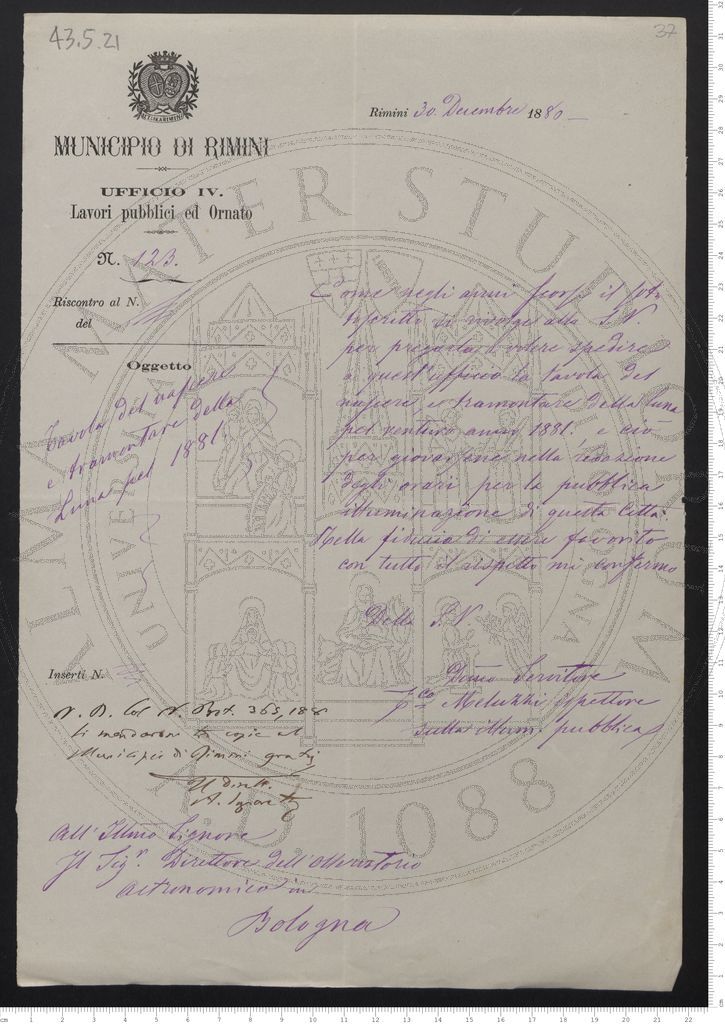 43.5.21
37
Rimini 30. Decembre 1880
MUNICIPIO DI RIMINI
UFFICIO IV.
Lavori pubblici ed Ornato
N. 123.
Riscontro al N.
del
Oggetto
Tavola del nascere
e tramontare della
Luna pel 1881.
Come negli anni scorsi il sot
toscritto si rivolge alla S.V.
per pregarla a volere spedire
a quest'ufficio la tavola del
nascere, e tramontare della luna
pel venturo anno 1881, e ciò
per giovarsene nella redazione
degli orari per la pubblica
illuminazione di questa Città.
Nella fiducia di essere favorito
con tutto il rispetto mi confermo
Della S.V.
Dimo Servitore
Meluzzi, ispettore
sulla illum. pubblica
Inserti N.
N. B. Col N. Prot. 363, 188
si mandarono le copie al
Municipio di Rimini gratis
Il dirett.
All'Illmo Signore
Il Sigr. Direttore dell'Osservatorio
Astronomico in
Bologna
ALMA MATER STUDIORUM
A.D. 1088